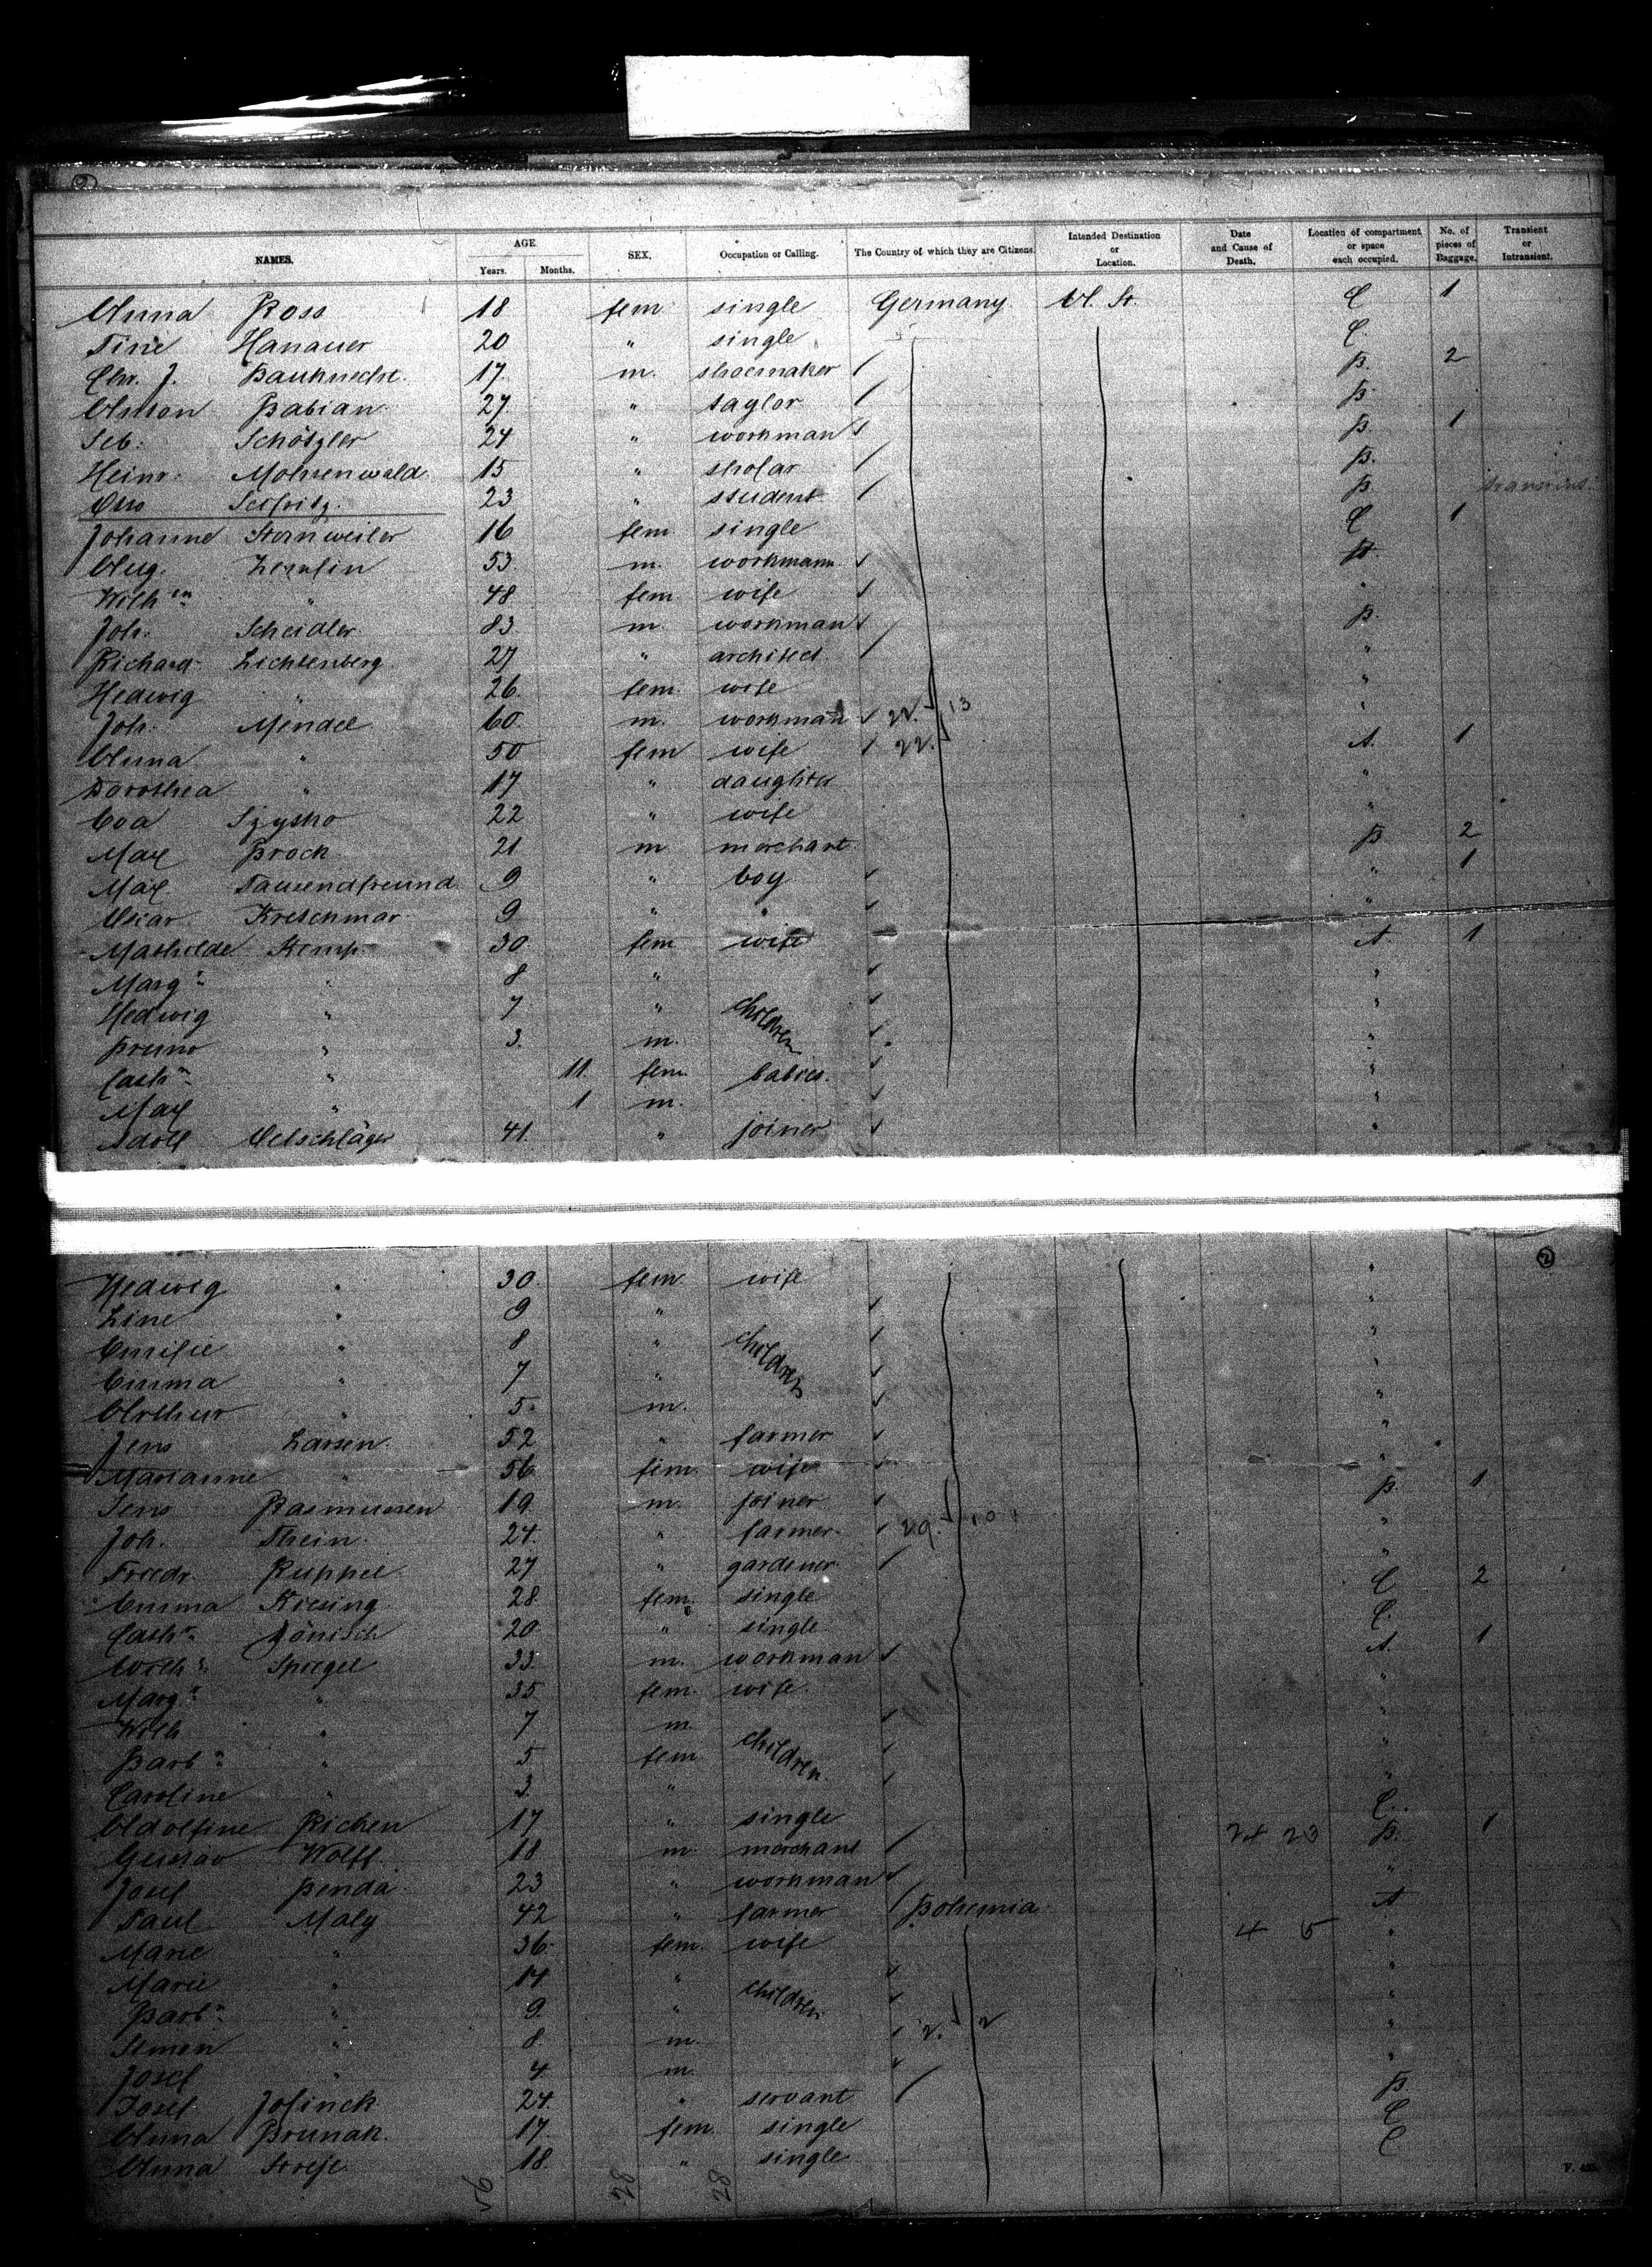 2
NAMES. AGE. Years. Months. SEX. Occupation or Calling. The Country of which they are Citizens. Intended Destination or Location. Date and Cause of Death. Location of compartment or space each occupied. No. of pieces of Baggage. Transient or Intransient.
Anna Ross 18 fem single Germany U. St. C 1
Tine Hanauer 20 " single C.
Chr. J. Bauknecht 17 m. shoemaker B. 2
Anton Babian 27 " taylor B.
Seb. Schötzler 24 " workman B. 1
Heinr. Mohrenwald 15 " sholar B.
Otto Seifritz 23 " student B.
Johanne Sternweiler 16 fem single C 1
Aug. 53 m. workmann A.
Wilhne " 48 fem wife "
Joh. Scheidler 83 m. workman B.
Richard Lichtenberg 27 " architect "
Hedwig " 26 fem. wife "
Joh. Mendel 60 m. workman 22. 13 "
Anna " 50 fem wife 22. A. 1
Dorothea " 17 " daughter "
Eva Szysko 22 " wife "
Max Brock 21 m merchant B 2
Max Tausendfreund 9 " boy " 1
Oscar Kretschmar 9 " " "
Mathilde Kemp 30 fem wife A 1
Marg. " 8 " "
Hedwig " 7 " children "
Bruno " 3. m. "
Cath. " 11. fem babies. "
Max " 1 m. "
Adolf Oelschläger 41. " joiner "
2
Hedwig " 30. fem wife "
Line " 9 " "
Emilie " 8 " children "
Emma " 7 " "
Arthur " 5. m. "
Jens Larsen 52 " farmer "
Marianne " 56 fem. wife "
Jens Rasmussen 19 m. joiner B. 1
Joh. Thein 24. " farmer 29. "
Friedr. Ruppel 27 " gardener "
Emma Kiesing 28 fem. single C 2
Cath. Dönisch 20 " single C.
Wilh. Spiegel 33. m. workman A 1
Marg. " 35 fem. wife "
Wilh " 7 m. "
Barb. " 5 fem children "
Caroline " 3 " "
Adolfine Richen 17 " single C.
Gustav Wolff 18 m merchant 24 23 B. 1
Josef Benda 23 " workman "
Paul Maly 42 " farmer Bohemia A
Marie " 36 fem. wife 4 5 "
Marie " 14 " "
Barb. " 9. " children "
Simon " 8 m. 2. 2 "
Josef " 4 m "
Josef Jolinek 24. " servant B
Anna Brunak 17. fem. single C
Anna Streje 18. " single C
56 28 28